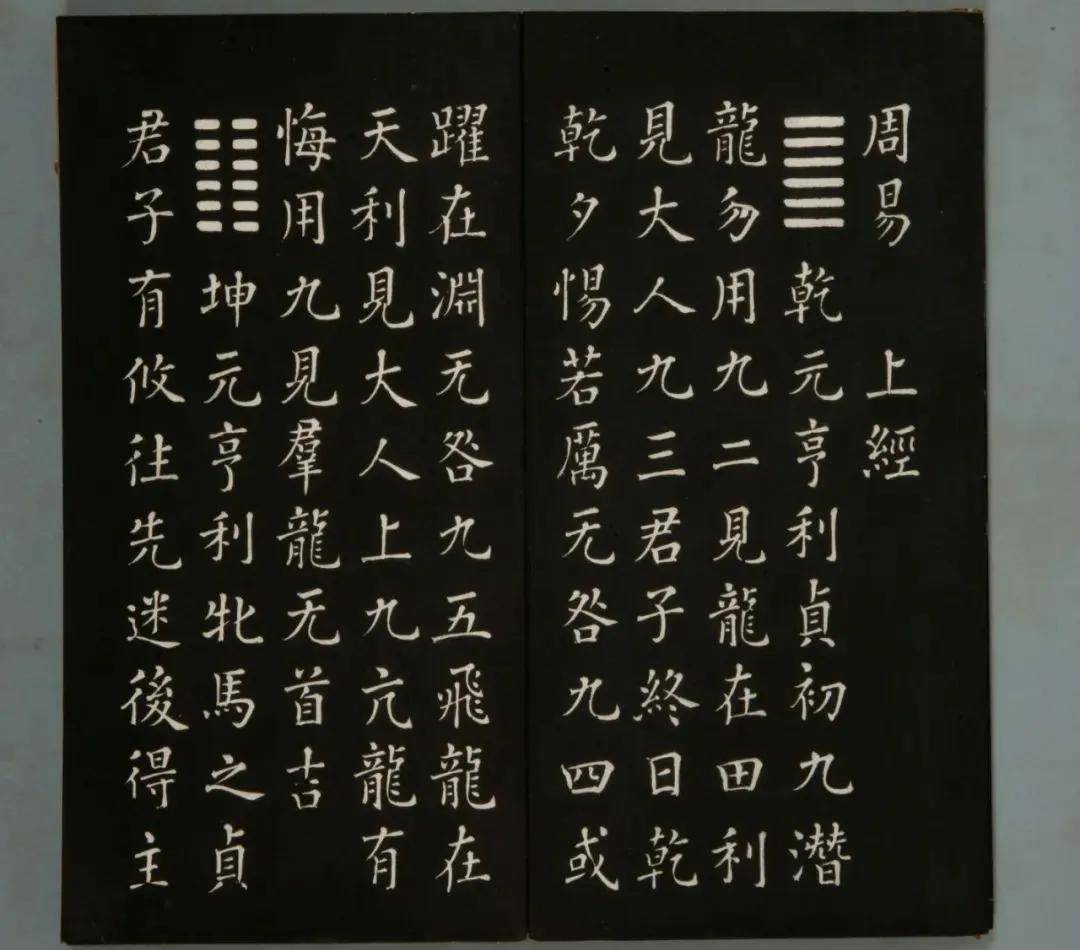 周易 上經
䷀乾元亨利貞初九潛
龍勿用九二見龍在田利
見大人九三君子終日乾
乾夕惕若厲无咎九四或
躍在淵无咎九五飛龍在
天利見大人上九亢龍有
悔用九見羣龍无首吉
䷁坤元亨利牝馬之貞
君子有攸往先迷後得主